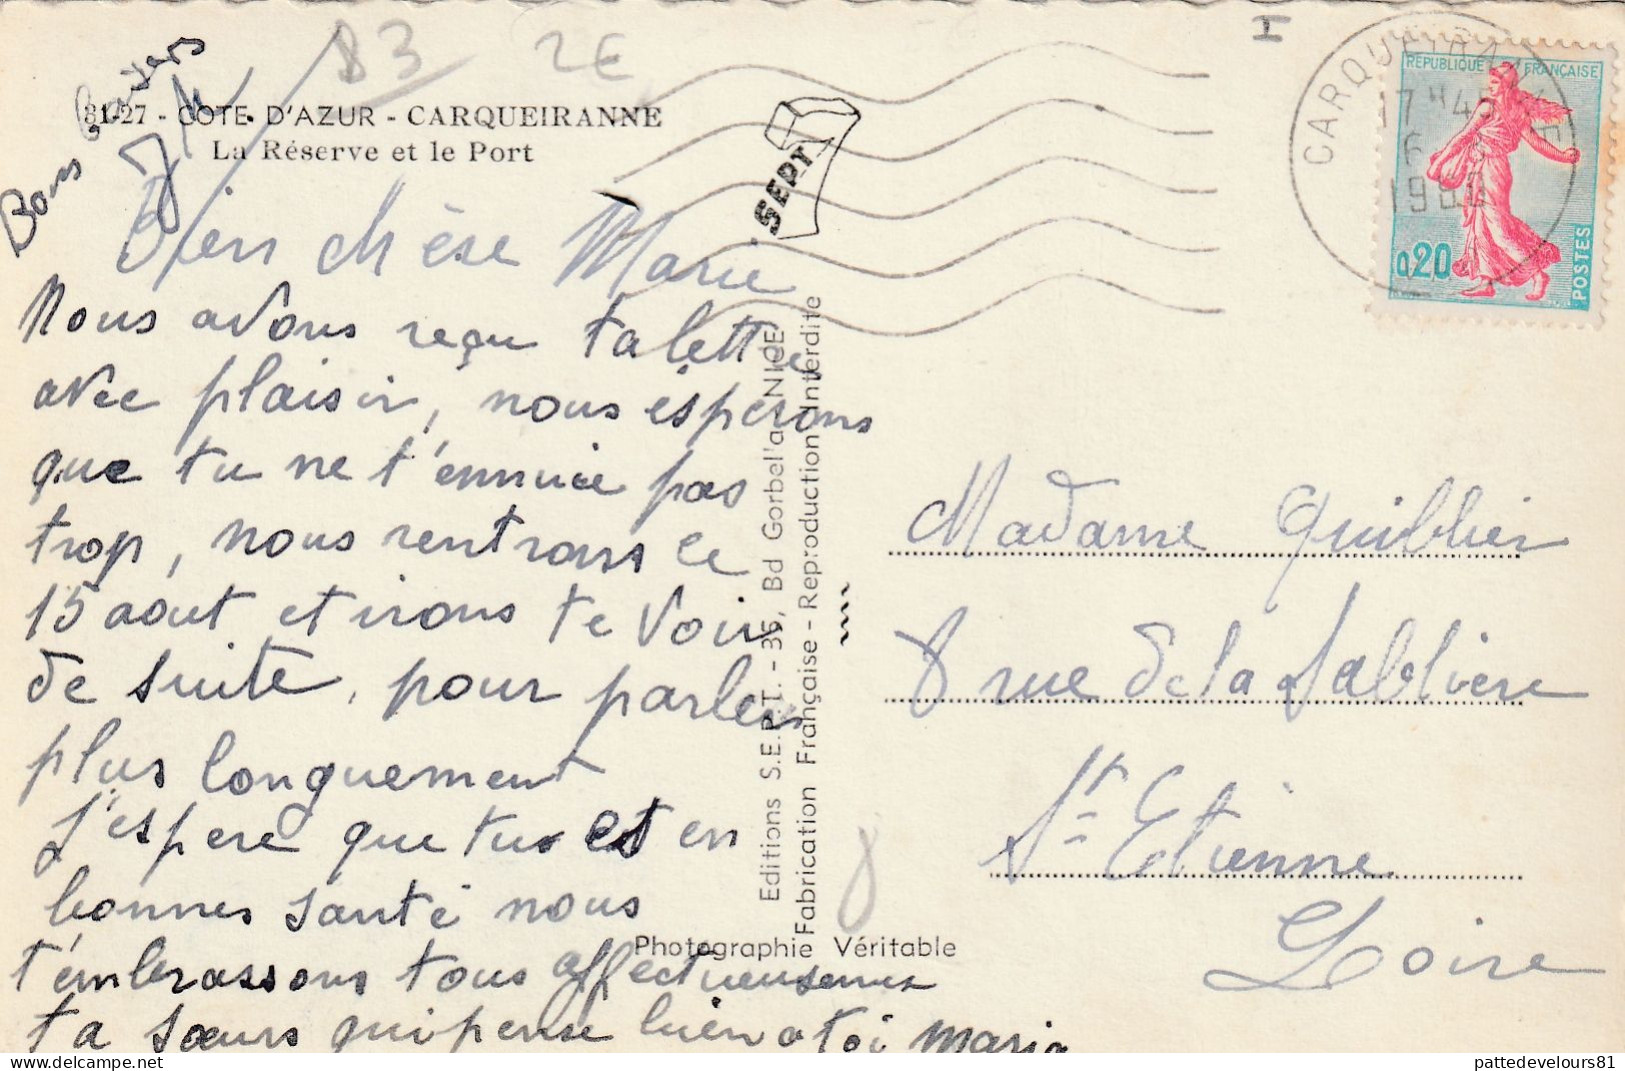 83
2€
I
Bons Baisers
JM
81-27 - COTE D'AZUR - CARQUEIRANNE
La Réserve et le Port
SEPT
CARQUEIRANNE
17 H 45
6 8
1960
REPUBLIQUE FRANÇAISE
0,20
POSTES
Bien chèse Marie
Nous avons reçu ta lettre
avec plaisir, nous ésperons
que tu ne t'ennuie pas
trop, nous rentrons le
15 aout et irons te voir
de suite, pour parler
plus longuement
J'espere que tu est en
bonnes santé nous
t'émbrassons tous affectueusement
ta sœurs qui pense bien a toi Maria
Editions S.E.P.T. - 35, Bd Gorbella NICE
Fabrication Française - Reproduction Interdite
Photographie Véritable
Madame Quiblier
8 rue de la Sablière
St Etienne
Loire
8
pattedevelours81